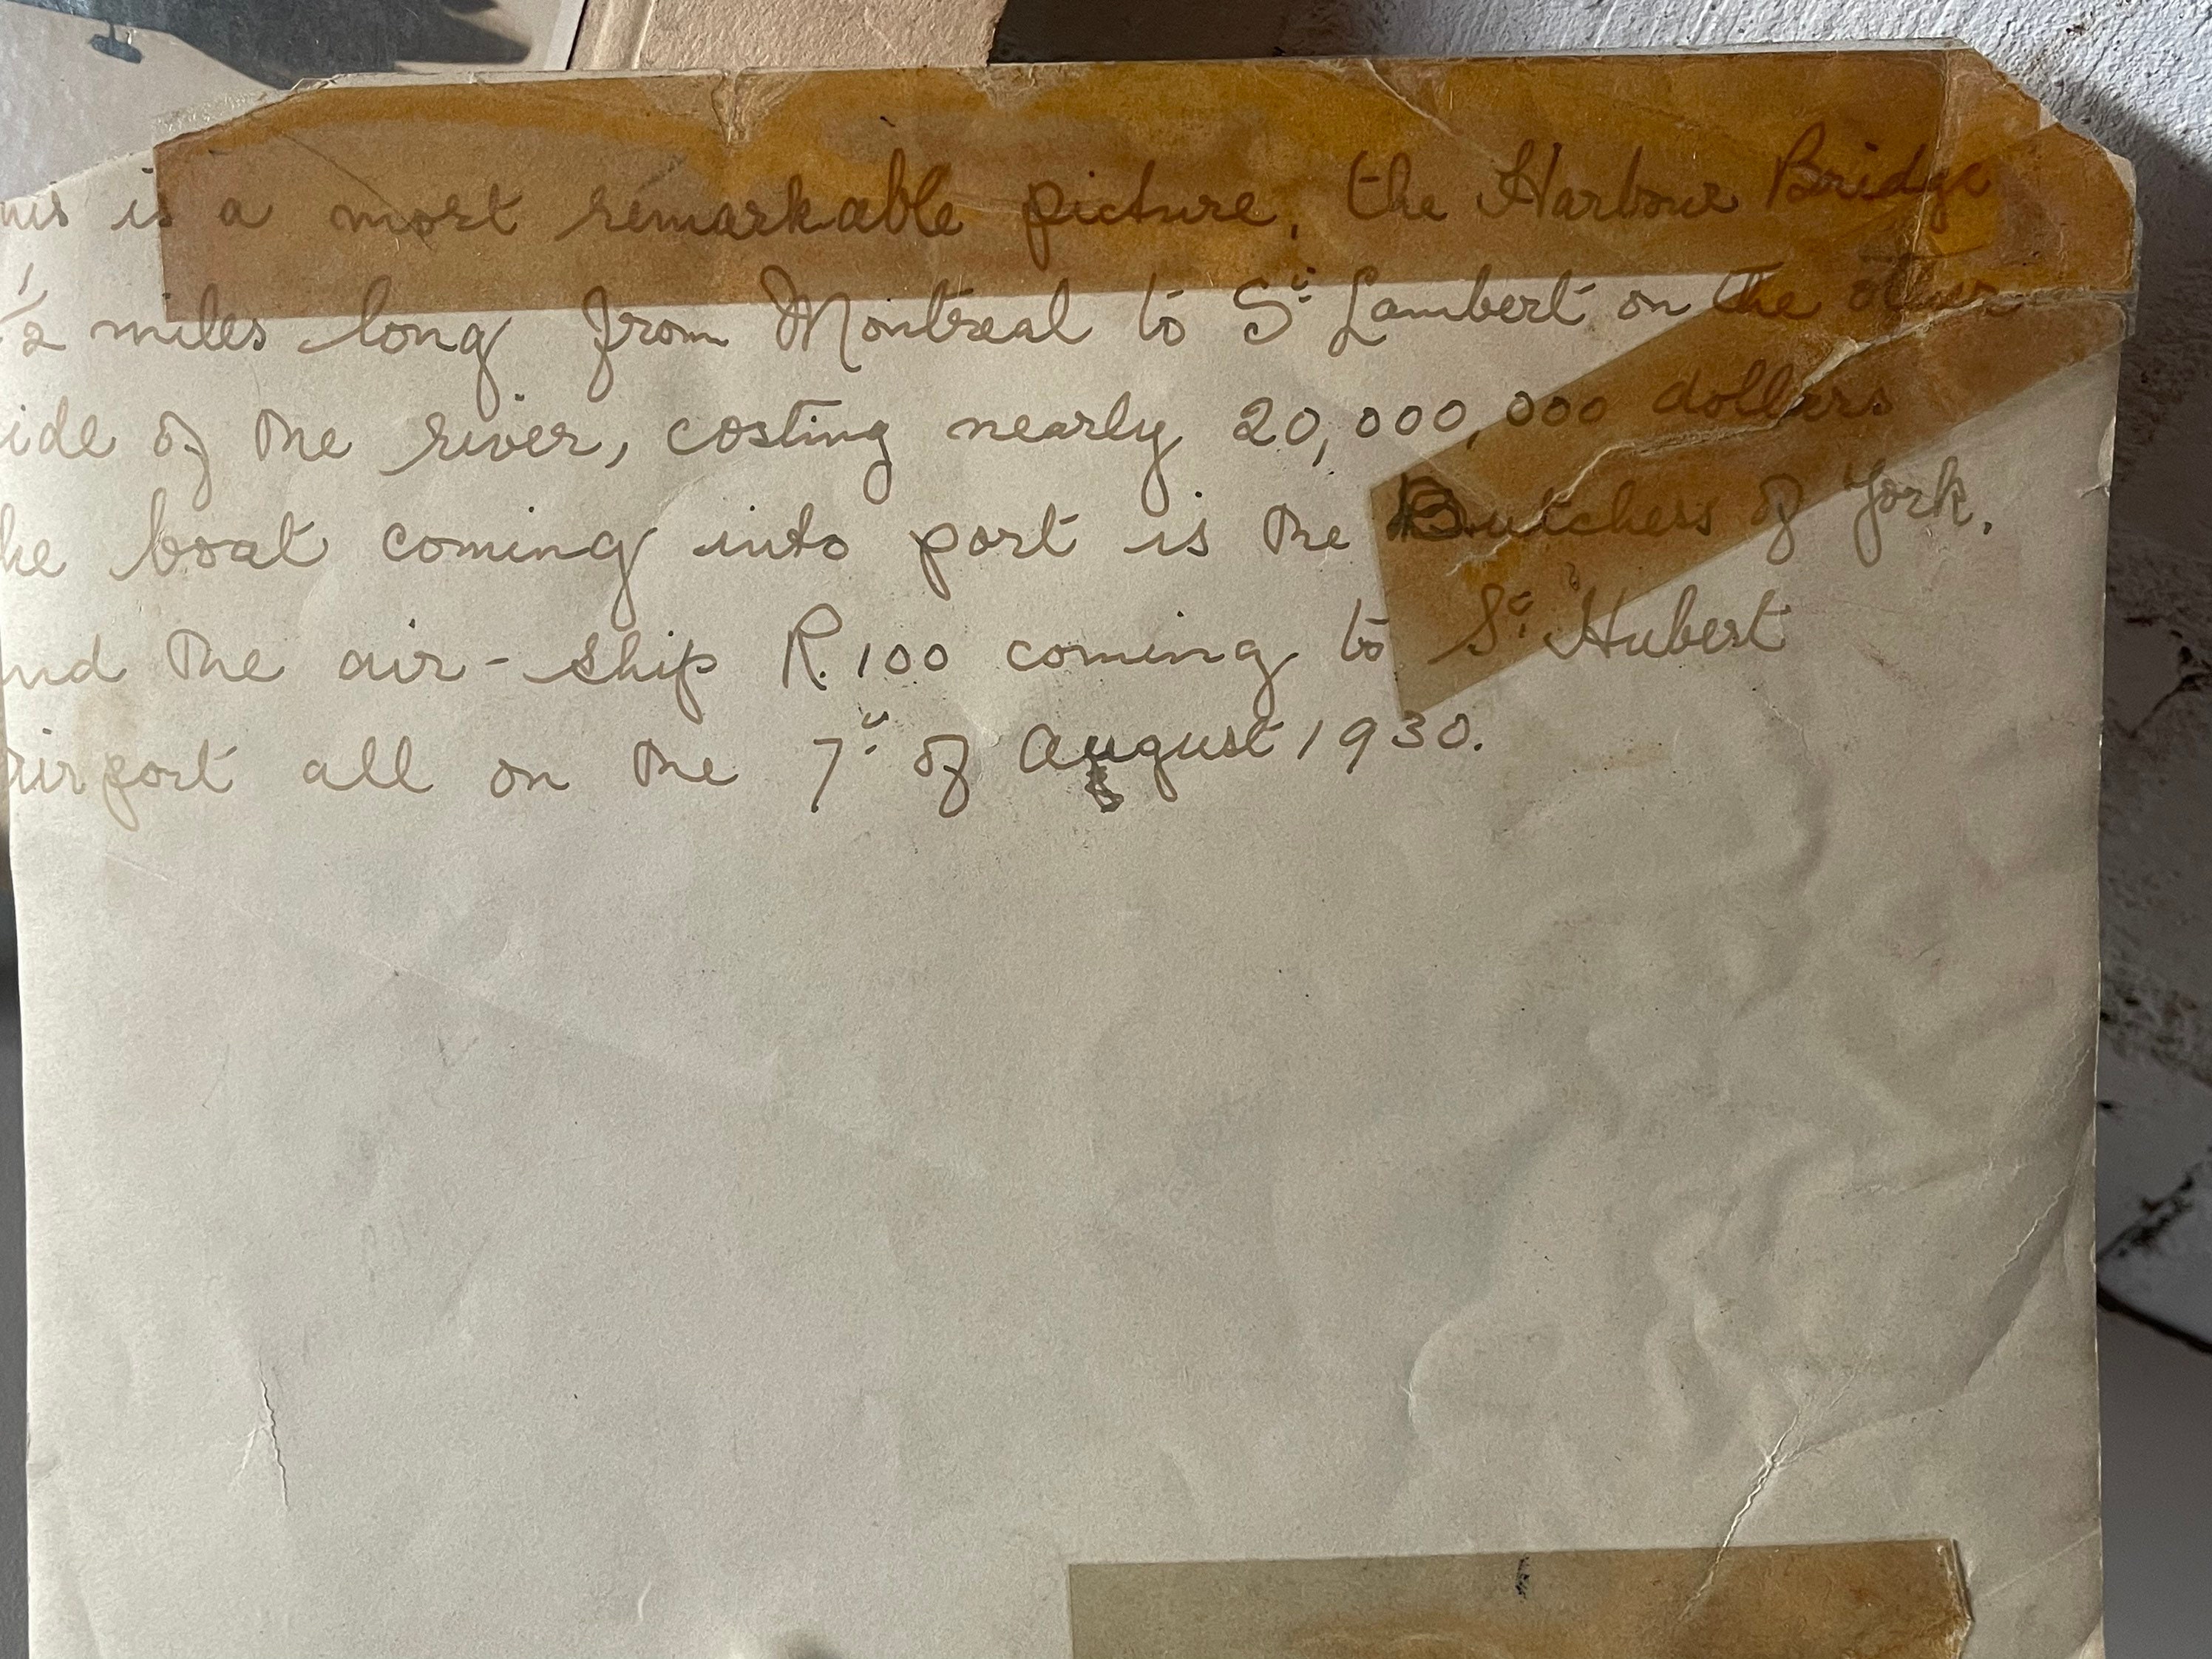 is a most remarkable picture, the Harbour Bridge
1/2 miles long from Montreal to St Lambert on the other
ide of the river, costing nearly 20,000,000 dollars
he boat coming into port is the Butchess of York.
nd the air-ship R.100 coming to St Hubert
airport all on the 7th of August 1930.